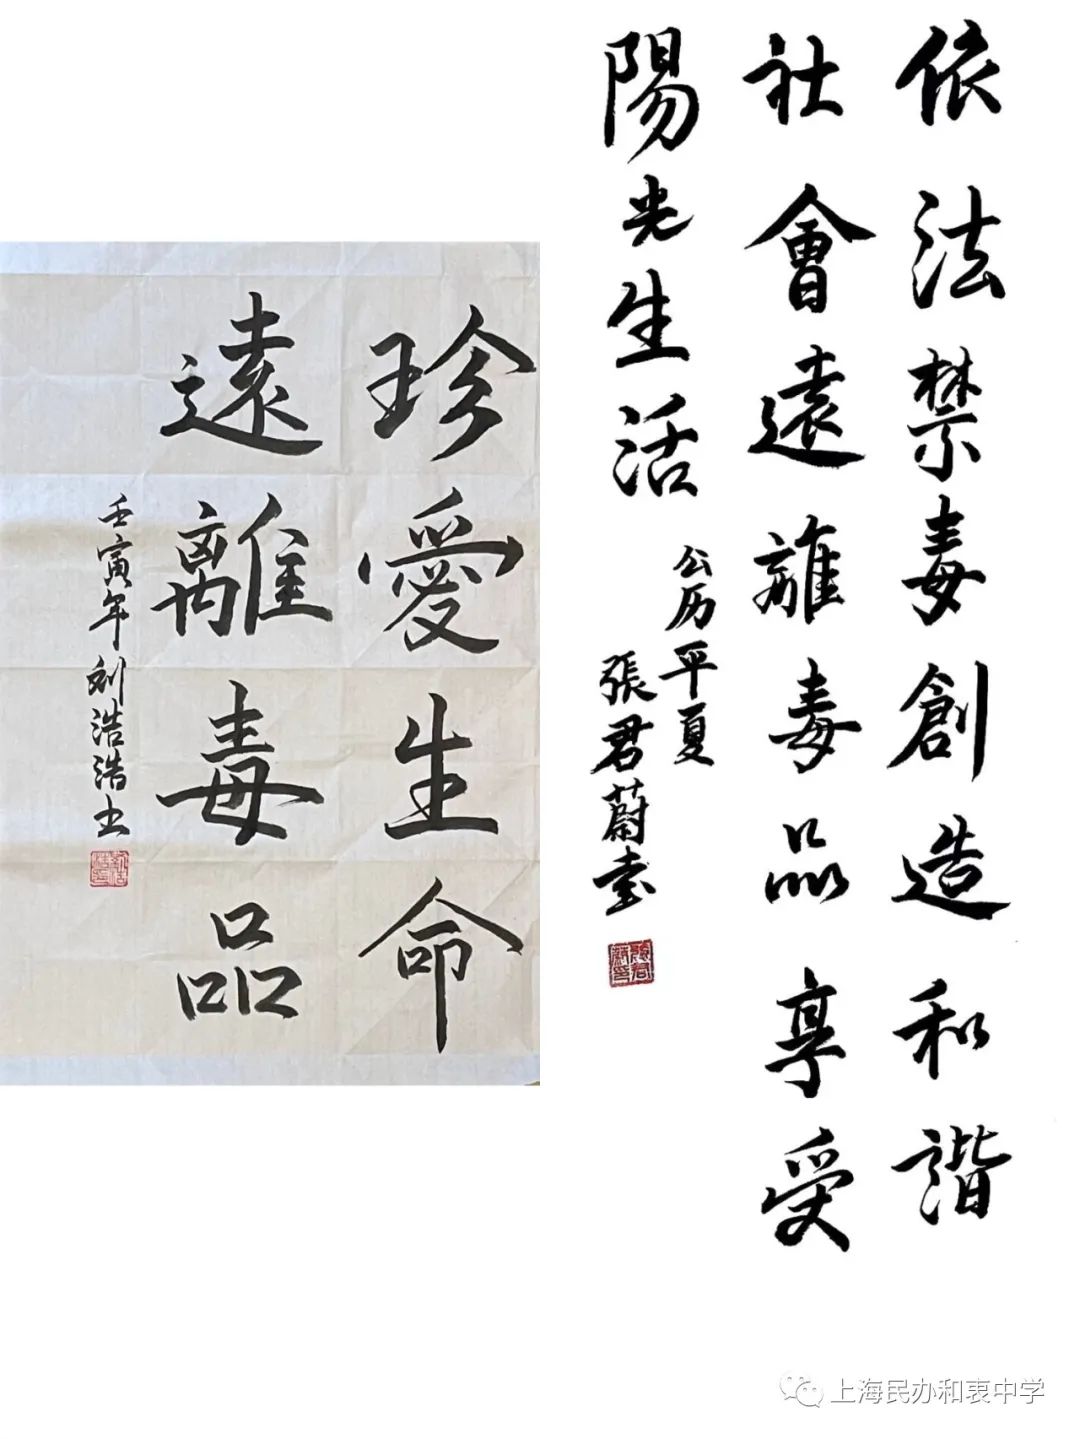 依法禁毒創造和諧
社會遠離毒品享受
陽光生活
公历夏
張君蔚書
珍愛生命
遠離毒品
壬寅年刘浩浩书
上海民办和衷中学